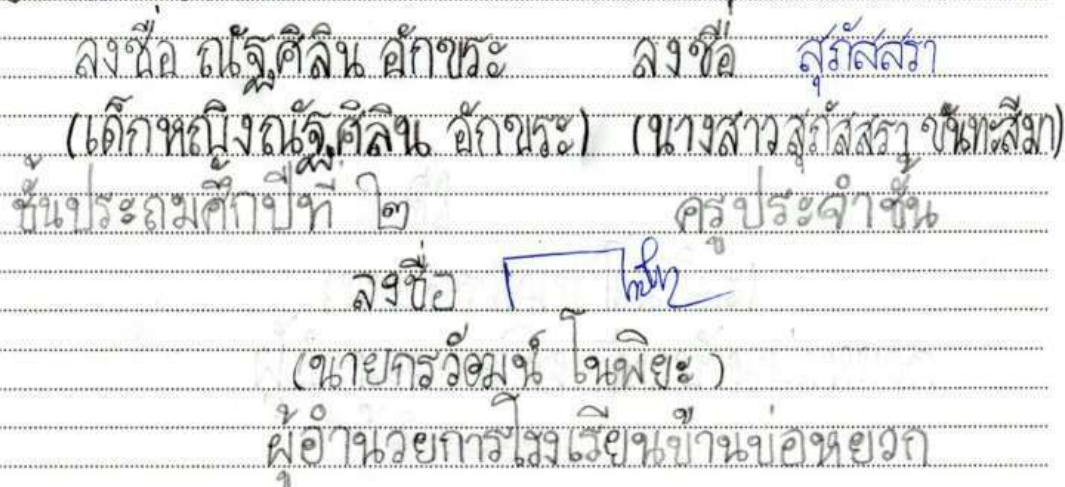 ลงชื่อ ณัฐศิลิน อักขระ ลงชื่อ สุภัสสรา
(เด็กหญิงณัฐศิลิน อักขระ) (นางสาวสุภัสสรา ขันทะสีมา)
ชั้นประถมศึกปีที่ ๒ ครูประจำชั้น
ลงชื่อ
(นายกรวัฒน์ โนพิยะ)
ผู้อำนวยการโรงเรียนบ้านบ่อหยวก